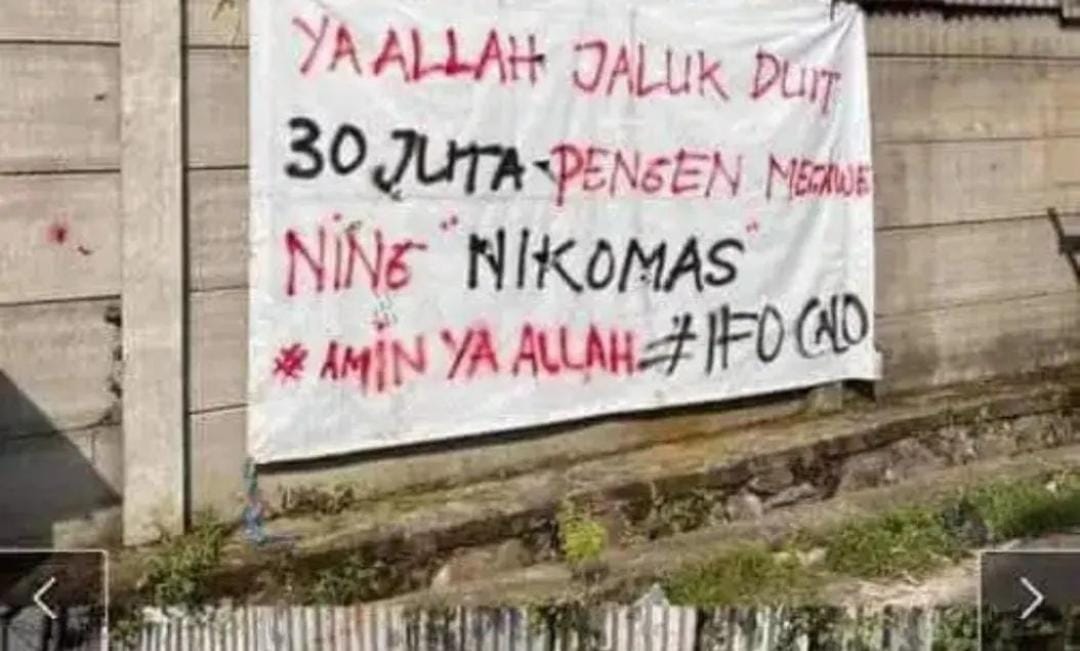 YA ALLAH JALUK DUIT
30 JUTA PENGEN MEGAWE
NING "NIKOMAS"
* AMIN YA ALLAH # IFO CALO